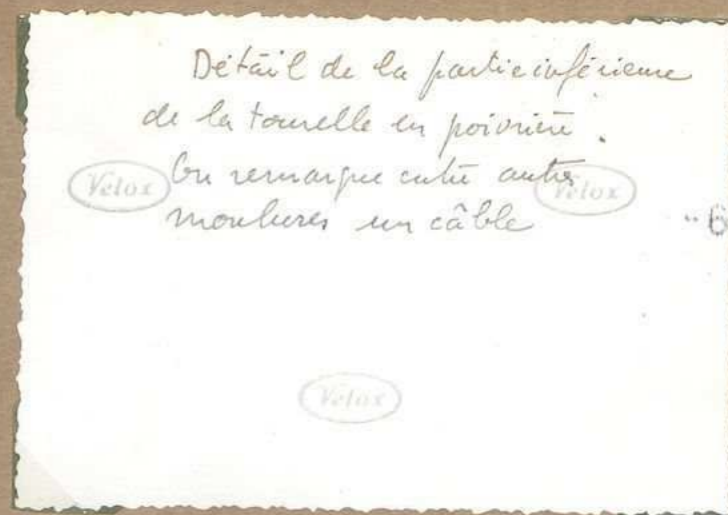 Détail de la partie inférieure
de la tourelle en poivrière.
On remarque entre autres
moulures un câble
Velox
Velox
Velox
6